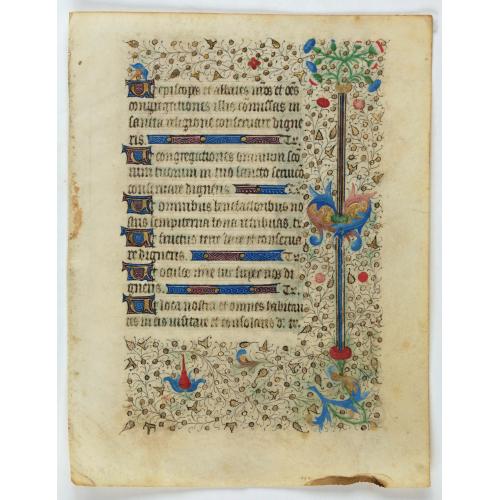 Ut episcopos et abbates nr̃os et oẽs
congregationes illis comissas in
sancta religione conservare digne
ris. Te.
Ut congregationes omnium sctõ
rum tuorum in tuo sancto servicio
conservare digneris.
Ut omnibus benefactoribus no
stris sempiterna bona retribuas. te.
Ut fructus terre dare et conserva
re digneris. Te.
Ut oculos mie tue super nos di
gneris. Te.
Ut loca nostra et omnes habitan
tes in eis visitare et consolari d. te.